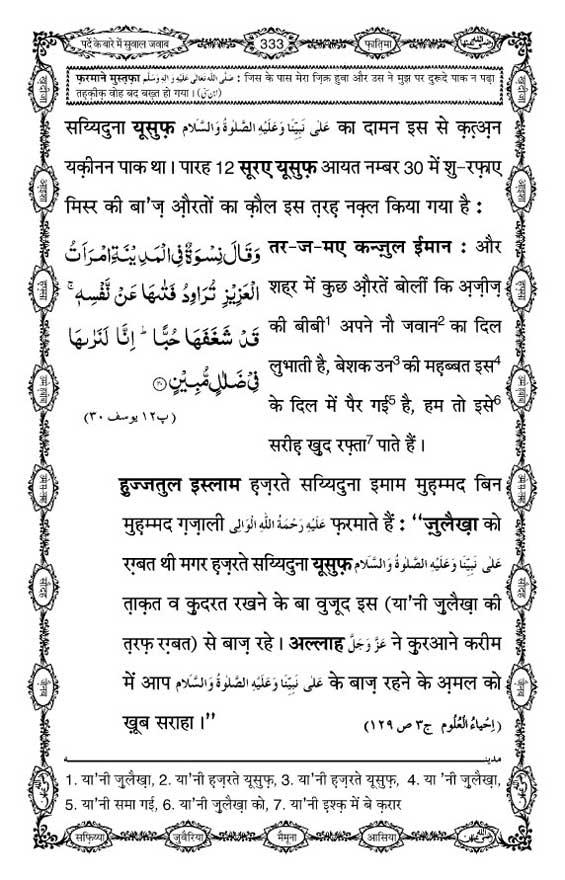 पर्दे के बारे में सुवाल जवाब
333
फ़ातिमा
फ़रमाने मुस्तफ़ा صَلَّى اللهُ تَعَالٰى عَلَيْهِ وَاٰلِهٖ وَسَلَّم : जिस के पास मेरा ज़िक्र हुवा और उस ने मुझ पर दुरूदे पाक न पढ़ा
तहक़ीक़ वोह बद बख़्त हो गया।
सय्यिदुना यूसुफ़ عَلٰى نَبِيِّنَا وَعَلَيْهِ الصَّلٰوةُ وَالسَّلَام का दामन इस से क़त्अ़न
यक़ीनन पाक था। पारह 12 सूरए यूसुफ़ आयत नम्बर 30 में शु-रफ़ाए
मिस्र की बा'ज़ औ़रतों का क़ौल इस त़रह़ नक़्ल किया गया है :
وَقَالَ نِسْوَةٌ فِي الْمَدِيْنَةِ امْرَاَتُ
الْعَزِيْزِ تُرَاوِدُ فَتٰىهَا عَنْ نَّفْسِهٖ ۚ
قَدْ شَغَفَهَا حُبًّا ؕ اِنَّا لَنَرٰىهَا
فِيْ ضَلٰلٍ مُّبِيْنٍ ۝۳۰
(پ۱۲ یوسف ۳۰)
तर-ज-मए कन्ज़ुल ईमान : और
शहर में कुछ औ़रतें बोलीं कि अ़ज़ीज़
की बीबी¹ अपने नौ जवान² का दिल
लुभाती है, बेशक उन³ की मह़ब्बत इस⁴
के दिल में पैर गई⁵ है, हम तो इसे⁶
सरीह़ ख़ुद रफ़्ता⁷ पाते हैं।
हुज्जतुल इस्लाम ह़ज़रते सय्यिदुना इमाम मुह़म्मद बिन
मुह़म्मद ग़ज़ाली عَلَيْهِ رَحْمَةُ اللهِ الْوَالِى फ़रमाते हैं : “ज़ुलैख़ा को
रग़्बत थी मगर ह़ज़रते सय्यिदुना यूसुफ़ عَلٰى نَبِيِّنَا وَعَلَيْهِ الصَّلٰوةُ وَالسَّلَام
त़ाक़त व क़ुदरत रखने के बा वुजूद इस (या'नी ज़ुलैख़ा की
त़रफ़ रग़्बत) से बाज़ रहे। अल्लाह عَزَّوَجَلَّ ने क़ुरआने करीम
में आप عَلٰى نَبِيِّنَا وَعَلَيْهِ الصَّلٰوةُ وَالسَّلَام के बाज़ रहने के अ़मल को
ख़ूब सराहा।” (اِحْيَاءُ الْعُلُوم ج۳ ص ۱۲۹)
مدینہ
1. या'नी ज़ुलैख़ा, 2. या'नी ह़ज़रते यूसुफ़, 3. या'नी ह़ज़रते यूसुफ़, 4. या 'नी ज़ुलैख़ा,
5. या'नी समा गई, 6. या'नी ज़ुलैख़ा को, 7. या'नी इश्क़ में बे क़रार
सफ़िय्या
जुवैरिया
मैमूना
आसिया